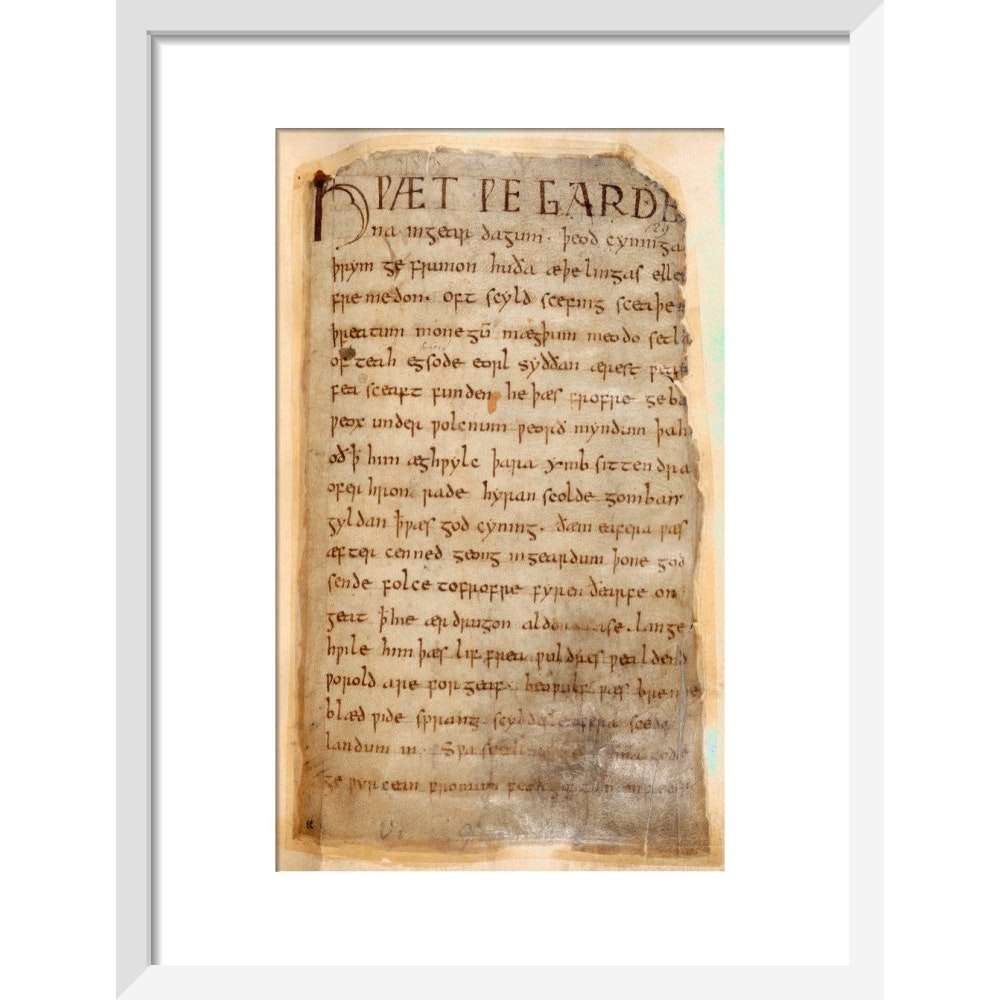 HǷÆT ǷE GARDE
na ingear dagum. þeod cyninga
þrym ge frunon huða æþelingas elle
fre medon. oft scyld scefing sceaþe
þreatum monegū mægþum meodo setla
of teah egsode eorl syððan ærest ƿear
fea sceaft funden he þæs frofre geba
ƿeox under ƿolcnum ƿeorð myndum þah
oð ꝥ him æghƿylc þara ymb sittendra
ofer hron rade hyran scolde gomban
gyldan ꝥ ƿæs god cyning. ðæm eafera ƿæs
æfter cenned geong in geardum þone god
sende folce tofrofre fyren ðearfe on
geat ꝥ hie ær drugon aldor ase. lange
hƿile him þæs lif frea ƿuldres ƿealdend
ƿorold are for geaf. beoƿulf ƿæs breme
blæd ƿide sprang scyldes eafera scede
landum in. Sƿa
ge ƿyrcean fromum feoh
129